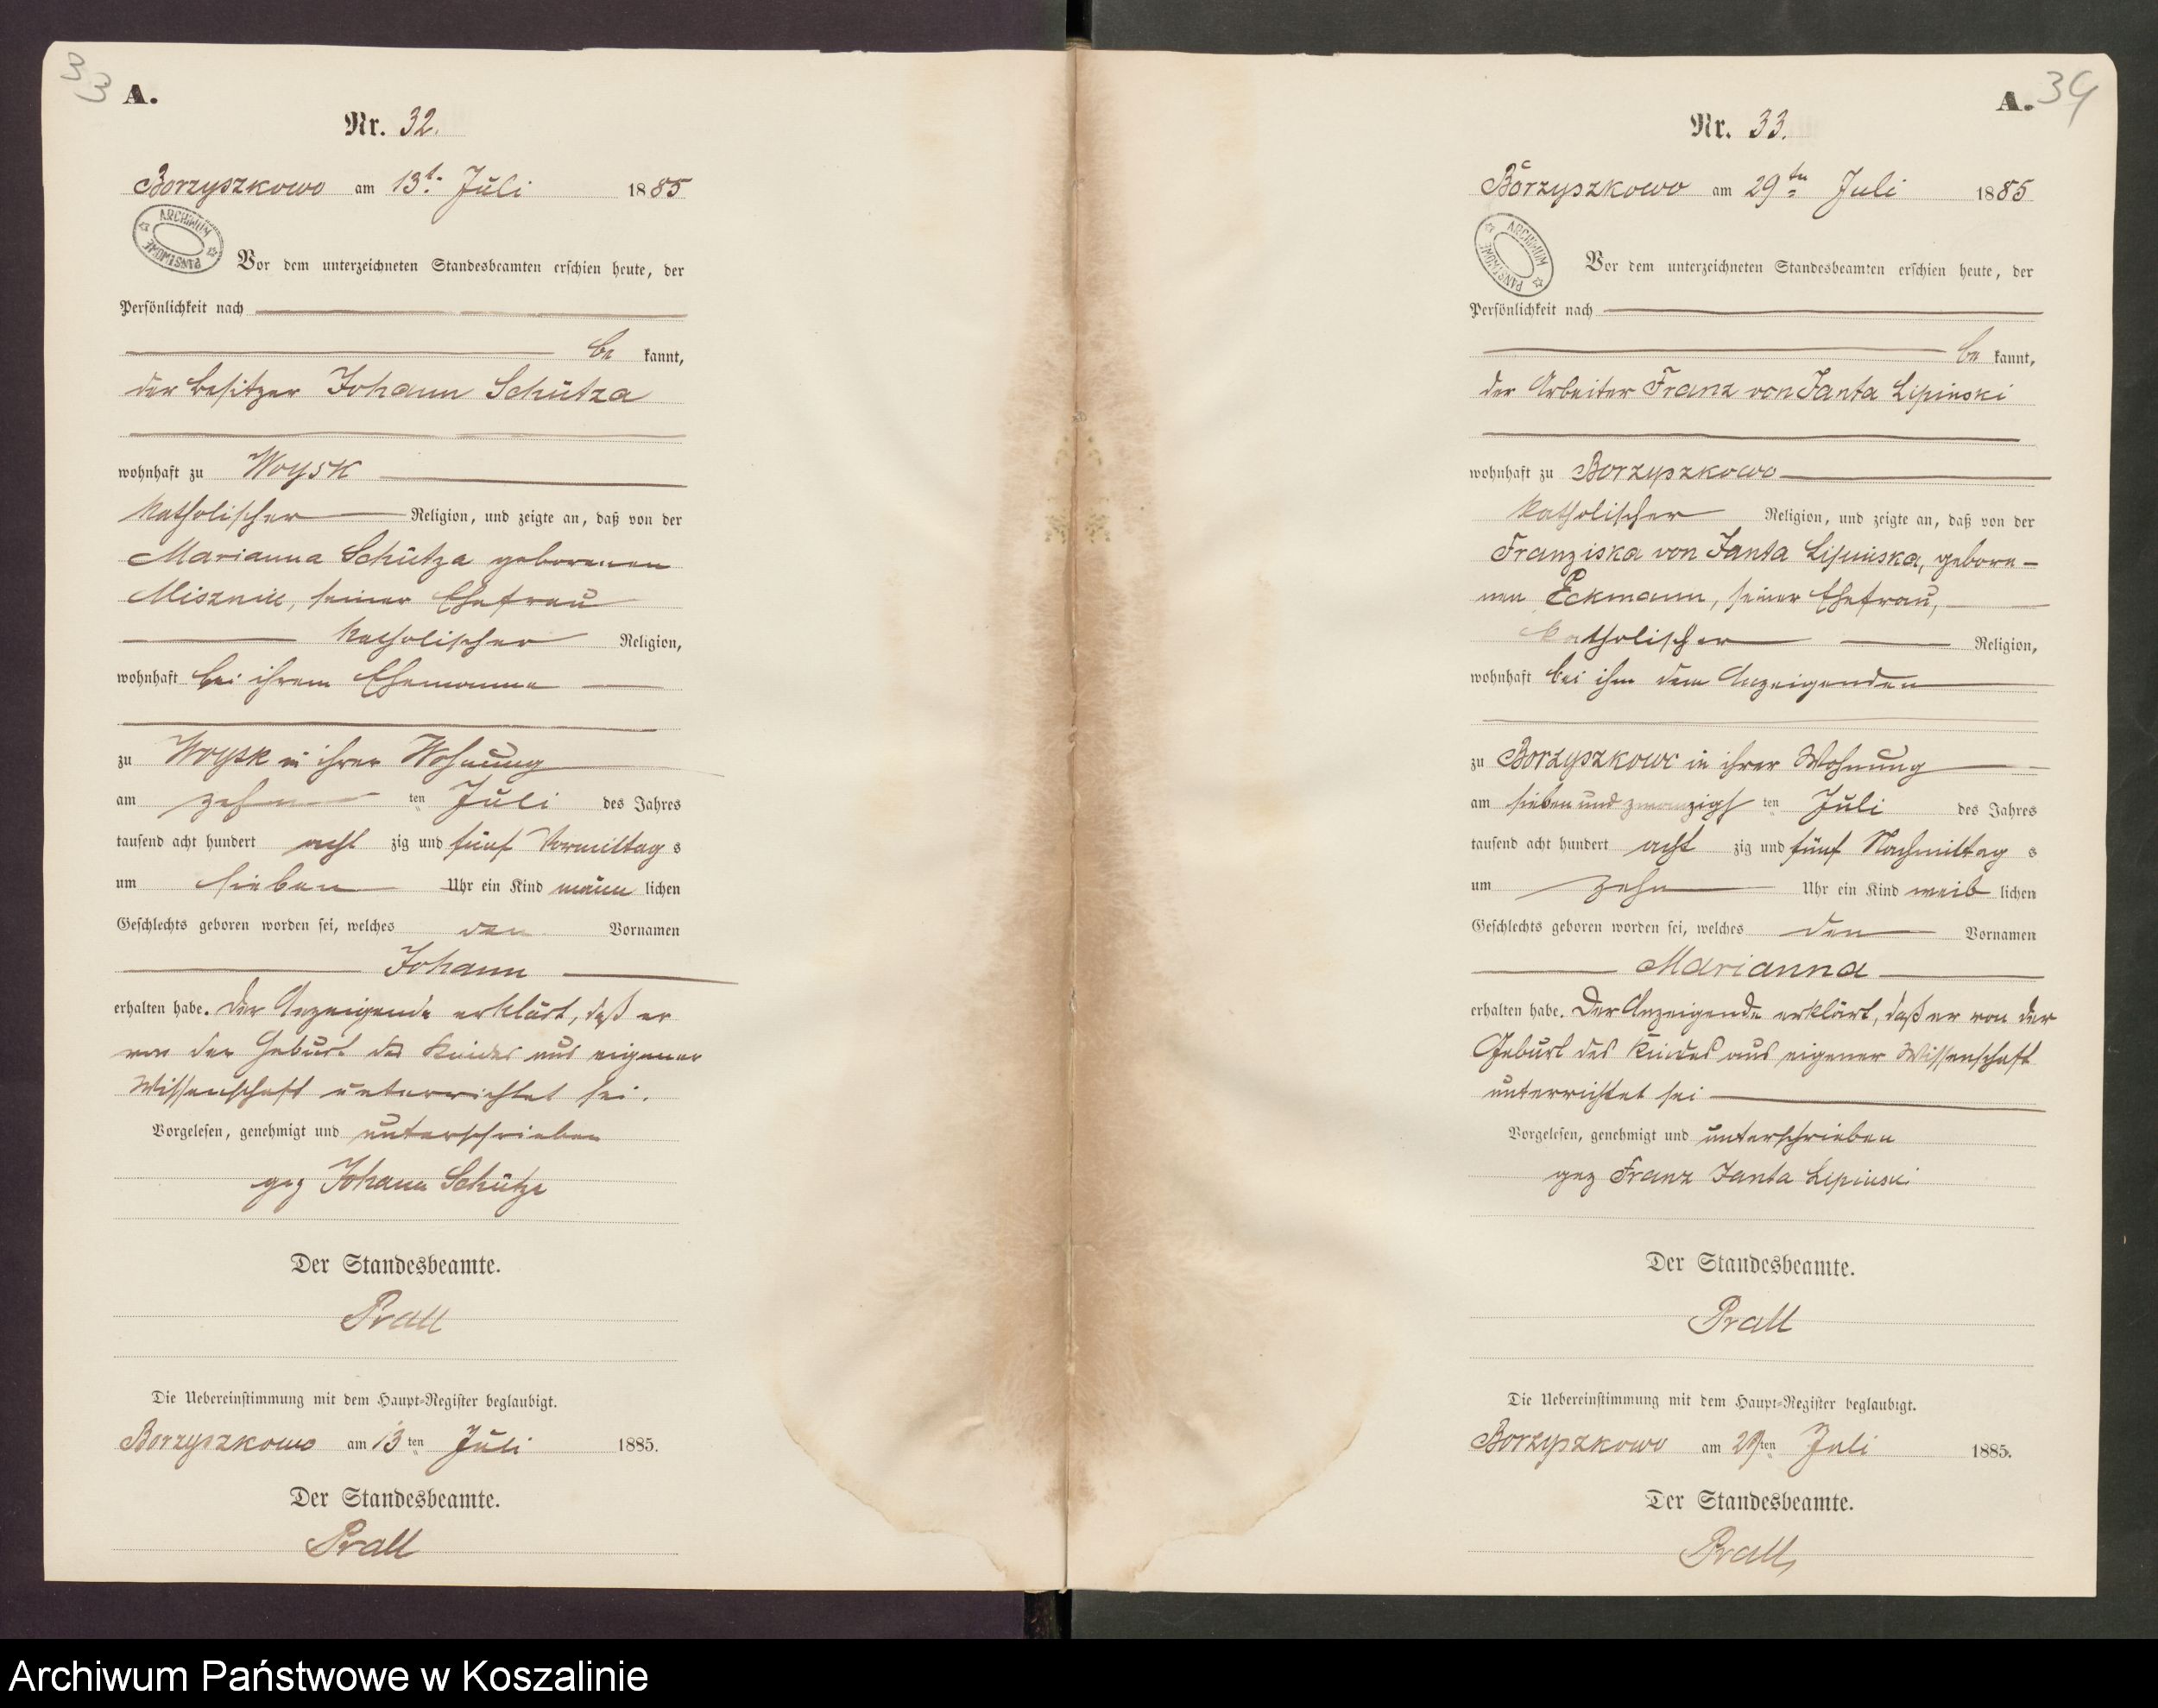 33
A.
Nr. 32.
Borzyszkowo am 13t. Juli 1885
ARCHIWUM PAŃSTWOWE
Vor dem unterzeichneten Standesbeamten erschien heute, der
Persönlichkeit nach
be kannt,
der Besitzer Johann Schütza
wohnhaft zu Woysk
katholischer Religion, und zeigte an, daß von der
Marianna Schütza geborenen
seiner Ehefrau
katholischer Religion,
wohnhaft bei ihrem Ehemanne
zu Woysk in ihrer Wohnung
am zehn ten Juli des Jahres
tausend acht hundert acht zig und fünf Vormittag s
um sieben Uhr ein Kind männ lichen
Geschlechts geboren worden sei, welches den Vornamen
Johann
erhalten habe. Der Anzeigende erklärt, daß er
von der Geburt des Kindes aus eigener
Wissenschaft unterrichtet sei.
Vorgelesen, genehmigt und unterschrieben
gez Johann Schütza
Der Standesbeamte.
Prall
Die Uebereinstimmung mit dem Haupt-Register beglaubigt.
Borzyszkowo am 13 ten Juli 1885.
Der Standesbeamte.
Prall
34
A.
Nr. 33.
Borzyszkowo am 29ten Juli 1885
ARCHIWUM PAŃSTWOWE
Vor dem unterzeichneten Standesbeamten erschien heute, der
Persönlichkeit nach
be kannt,
der Arbeiter Franz von Janta Lipinski
wohnhaft zu Borzyszkowo
katholischer Religion, und zeigte an, daß von der
Franziska von Janta Lipinska, gebore-
nen Eckmann, seiner Ehefrau,
katholischer Religion,
wohnhaft bei ihm dem Anzeigenden
zu Borzyszkowo in ihrer Wohnung
am sieben und zwanzigs ten Juli des Jahres
tausend acht hundert acht zig und fünf Nachmittag s
um zehn Uhr ein Kind weib lichen
Geschlechts geboren worden sei, welches den Vornamen
Marianna
erhalten habe. Der Anzeigende erklärt, daß er von der
Geburt des Kindes aus eigener Wissenschaft
unterrichtet sei
Vorgelesen, genehmigt und unterschrieben
gez Franz Janta Lipinski
Der Standesbeamte.
Prall
Die Uebereinstimmung mit dem Haupt-Register beglaubigt.
Borzyszkowo am 29 ten Juli 1885.
Der Standesbeamte.
Prall
Archiwum Państwowe w Koszalinie